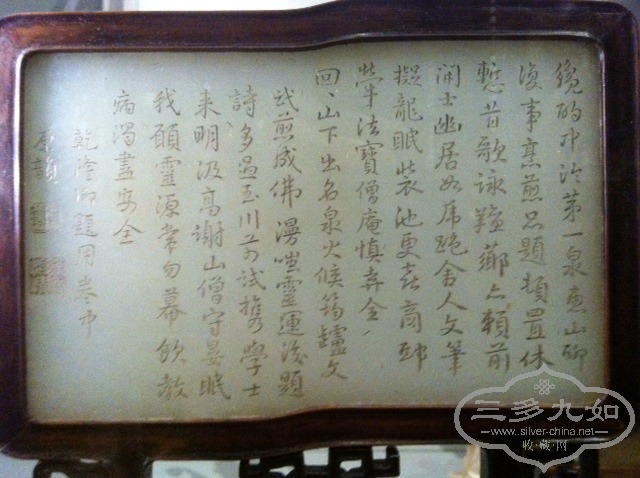 纔酌中泠第一泉惠山聊
復事烹煎品題頓置休
慙昔歌詠羶薌亦賴前
開士幽居如虎跑舍人文筆
擬龍眠裝池更喜商邱
犖法寶僧庵慎弆全
回ヽ山下出名泉火候筠罏文
武煎成佛漫嗤靈運後題
詩多過玉川前試攜學士
來明汲高謝山僧守晏眠
我願靈源常勿幕飲教
病渴盡安全
乾隆御題用卷中
原韻
三多九如
www.silver-china.net
收·藏·网